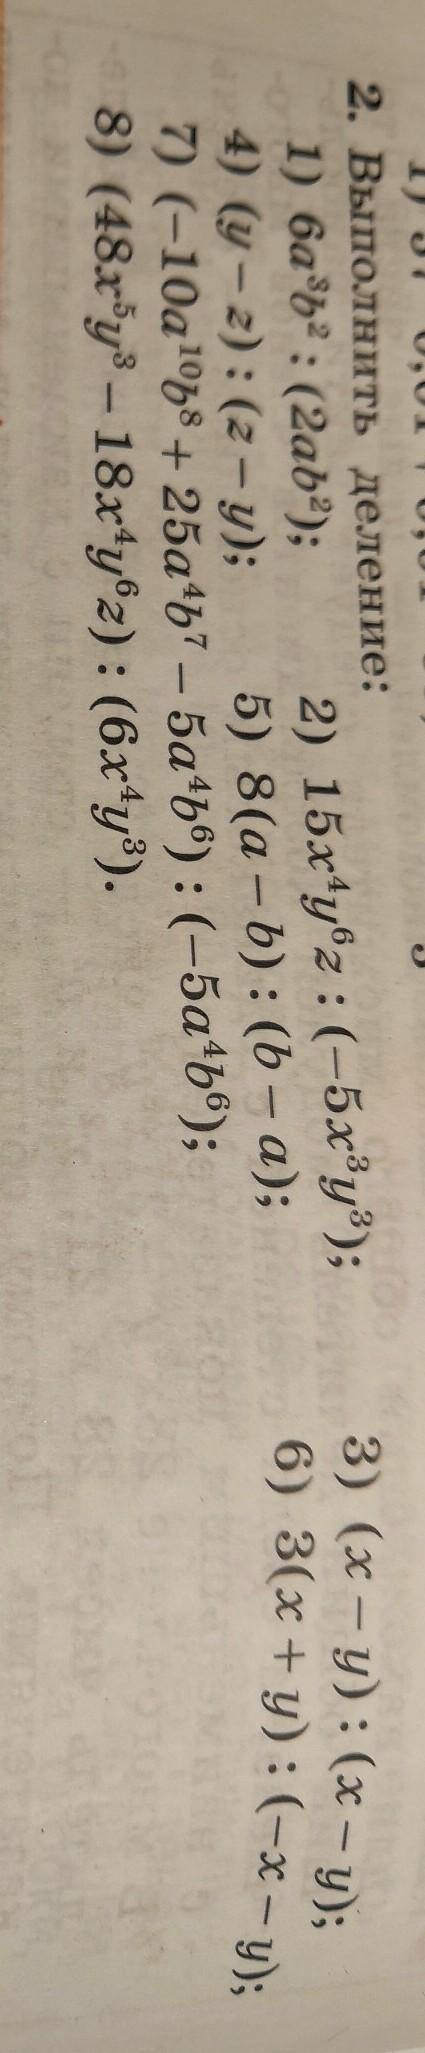 2. Выполнить деление:
1) 6a³b² : (2ab²); 2) 15x⁴y⁶z : (−5x³y³); 3) (x − y) : (x − y);
4) (y − z) : (z − y); 5) 8(a − b) : (b − a); 6) 3(x + y) : (−x − y);
7) (−10a¹⁰b⁸ + 25a⁴b⁷ − 5a⁴b⁶) : (−5a⁴b⁶);
8) (48x⁵y³ − 18x⁴y⁶z) : (6x⁴y³).